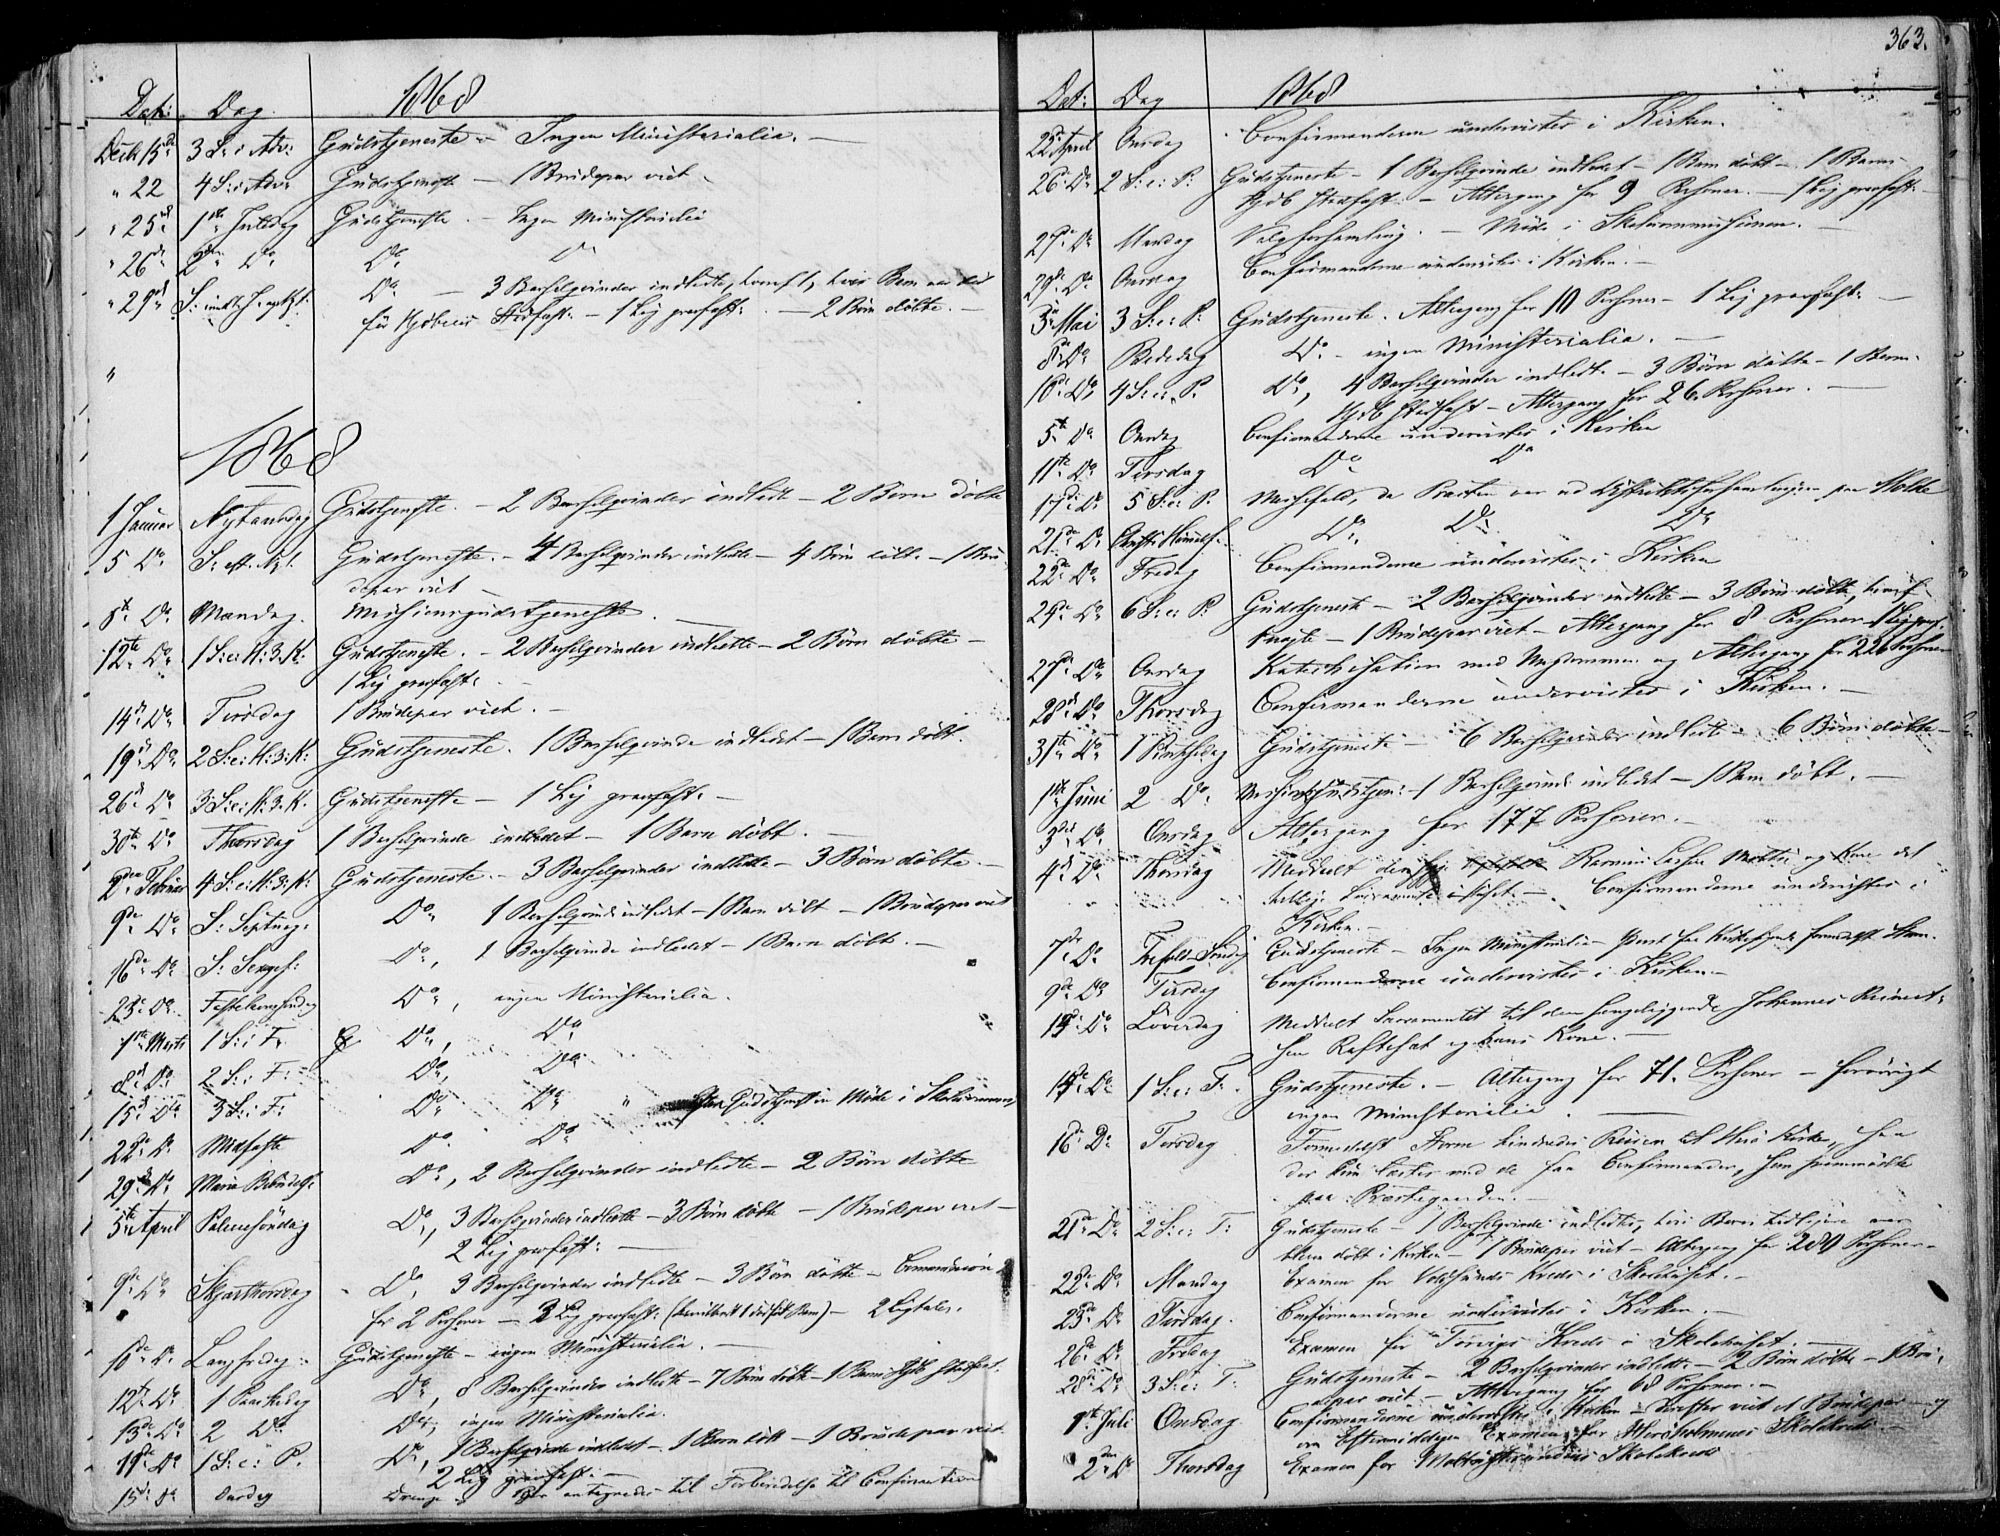 Dat: Dag. 1868
Decb 15de 3 S: i Adv: Gudstjeneste - Ingen Ministerialia. -
" 22 4 S: i Adv: Gudstjeneste - 1 Brudepar viet.
" 25de 1ste Juledag Gudstjeneste. - Ingen Ministerialia
" 26de 2den Do Do Do
" 29de S: Do - 3 Barselqvinder indledte, hvis Barn
Hjdbr: Stadfæst: - 1 Lig græsfæst: - 2 Børn døbte. -
"
1868
1 Januar Nytaarsdag Gudstjeneste. - 2 Barselqvinder indledte - 2 Børn døbte
5 Do S: eft. Nyt. Gudstjeneste. - 4 Barselqvinder indledte - 4 Børn døbt. - 1 Bru-
depar viet -
Do Mandag. Missionsgudstjeneste. -
12te Do 1 S: e: H: 3: K: Gudstjeneste. - 2 Barselqvinder indledte - 2 Børn døbte -
1 Lig græsfæst: -
14de Do Tirsdag 1 Brudepar viet. -
19de Do 2 S: e: H: 3: K: Gudstjeneste. 1 Barselqvinde indledet - 1 Barn døbt.
26de Do 3 S: e: H: 3. K. Gudstjeneste - 1 Lig græsfæst. -
30te Do Thorsdag 1 Barselqvinde indledet - 1 Barn døbt. -
2den Februar 4 S: e: H: 3: K: Gudstjeneste. - 3 Barselqvinder indledte - 3 Børn døbte. -
9de Do S: Septuag: Do 1 Barselqvinde indledet - 1 Barn døbt - 1 Brudepar viet
16de Do S: Sexages: Do, 1 Barselqvinde indledet - 1 Barn døbt. -
23de Do Fastelavnssøndag Do, ingen Ministerialia.
1ste Marts 1 S: i F: Do, Do
8de Do 2 S: i F: Do, Do
15de Do 3 S: i F: Do Do " Efter Gudstjenesten Møde i Skolecommis
22de Do Midfaste Do Do
29de Do Mariæ Bebudelse Do, 2 Barselqvinder indledte - 2 Børn døbte
5te April Palmesøndag Do, 3 Barselqvinder indledte - 3 Børn døbte - 1 Brudepar viet -
2 Lig græsfæst: -
9de Do Skjærthorsdag Do, 3 Barselqvinder indledte - 3 Børn døbte - Communion
for 2 Personer - 3 Lig græsfæst: - 2 Ligtaler.
10de Do Langfredag Gudstjeneste - ingen Ministerialia. -
12te Do 1 Paaskedag Do, 8 Barselqvinder indledte - 7 Børn døbte - 1 Barns Hjdb stadfæst.
13de Do 2 Do Do, ingen Ministerialia.
19de Do 1 S: e: P. Do, 1 Barselqvinde indledet - 1 Barn døbt - 1 Brudepar viet
2 Lig græsfæst: -
15de Do Onsdag antegnedes til Forberedelse til Confirmation
363.
Dat: Dag 1868
22de April Onsdag Confirmanderne undervistes i Kirken.
26de Do 2 S: e: P: Gudstjeneste - 1 Barselqvinde indledet - 1 Barn døbt - 1 Barns
Hjdb stadfæst - Altergang for 9 Personer. - 1 Lig græsfæst: -
27de Do Mandag Valgforsamling. - Møde i Skolecommissionen. -
29de Do Onsdag Confirmanderne undervistes i Kirken. -
3die Mai 3 S: e: P: Gudstjeneste. Altergang for 10 Personer - 1 Lig græsfæst: -
8de Do Bededag Do. - ingen Ministerialia. -
10de Do 4 S: e: P. Do, 4 Barselqvinder indledt. - 3 Børn døbte - 1 Barns
Hjdb stadfæst - Altergang for 26 Personer. -
5te Do Onsdag Confirmanderne undervistes i Kirken
11te Do Tirsdag Do Do
17de Do 5 S: e: P. Messefald, da Præsten var ved Distriktsforsamlingen paa Molde
21de Do Christi Himmelf. Do. Do Do
22de Do Fredag Confirmanderne undervistes i Kirken
24de Do 6 S: e: P: Gudstjeneste - 2 Barselqvinder indledte - 3 Børn døbte,
- 1 Brudepar viet - Altergang for 8 Personer -
27de Do Onsdag Katechisation med Ungdommen og Altergang for 22 Personer
28de Do Thorsdag Confirmanderne undervistes i Kirken. -
31te Do 1 Pintsedag Gudstjeneste - 6 Barselqvinder indledte - 6 Børn døbte -
1ste Juni 2 Do. Missionsgudstjen: - 1 Barselqvinde indledet - 1 Barn døbt. -
3die Do Onsdag Altergang for 177 Personer. -
4de Do Thorsdag Meddeelt den syge Rasmus og Kone det
hellige Sacramente i Huset - Confirmanderne undervistes i
Kirken. -
7de Do Trefold. Søndag Gudstjeneste - Ingen Ministerialia -
9de Do Tirsdag Confirmanderne undervistes i Kirken. -
13de Do Løverdag Meddeelt Sacramentet til den sengeliggende Johannes
og hans Kone. -
14de Do 1 S: e: T: Gudstjeneste. - Altergang for 71 Personer - forøvrigt
ingen Ministerialia. -
16de Do Tirsdag Formedelst Storm hindredes Reisen til Herø Kirke,
der kun læstes med de faa Confirmander, som fremmødte
paa Præstegaarden. -
21de Do 2 S: e: T: Gudstjeneste - 1 Barselqvinde indledtes, hvis Barn tidligere var
døbt i Kirken - 1 Brudepar viet - Altergang for 200 Personer. -
22de Do Mandag Examen for Kreds i Skolehuset. -
23de Do Tirsdag. Confirmanderne undervistes i Kirken. -
26de Do Fredag Examen for Torvigs Kreds i Skolehuset. -
28de Do 3 S: e: T: Gudstjeneste - 2 Barselqvinder indledt. - 2 Børn døbte - 1 Bru-
depar viet - Altergang for 68 Personer. -
1ste Juli Onsdag Confirmanderne undervistes i Kirken - derefter viet et Brudepar og
om Eftermiddagen Examen for Herøholmenes Skolekreds. -
2den Do Thorsdag Examen for Skolekreds